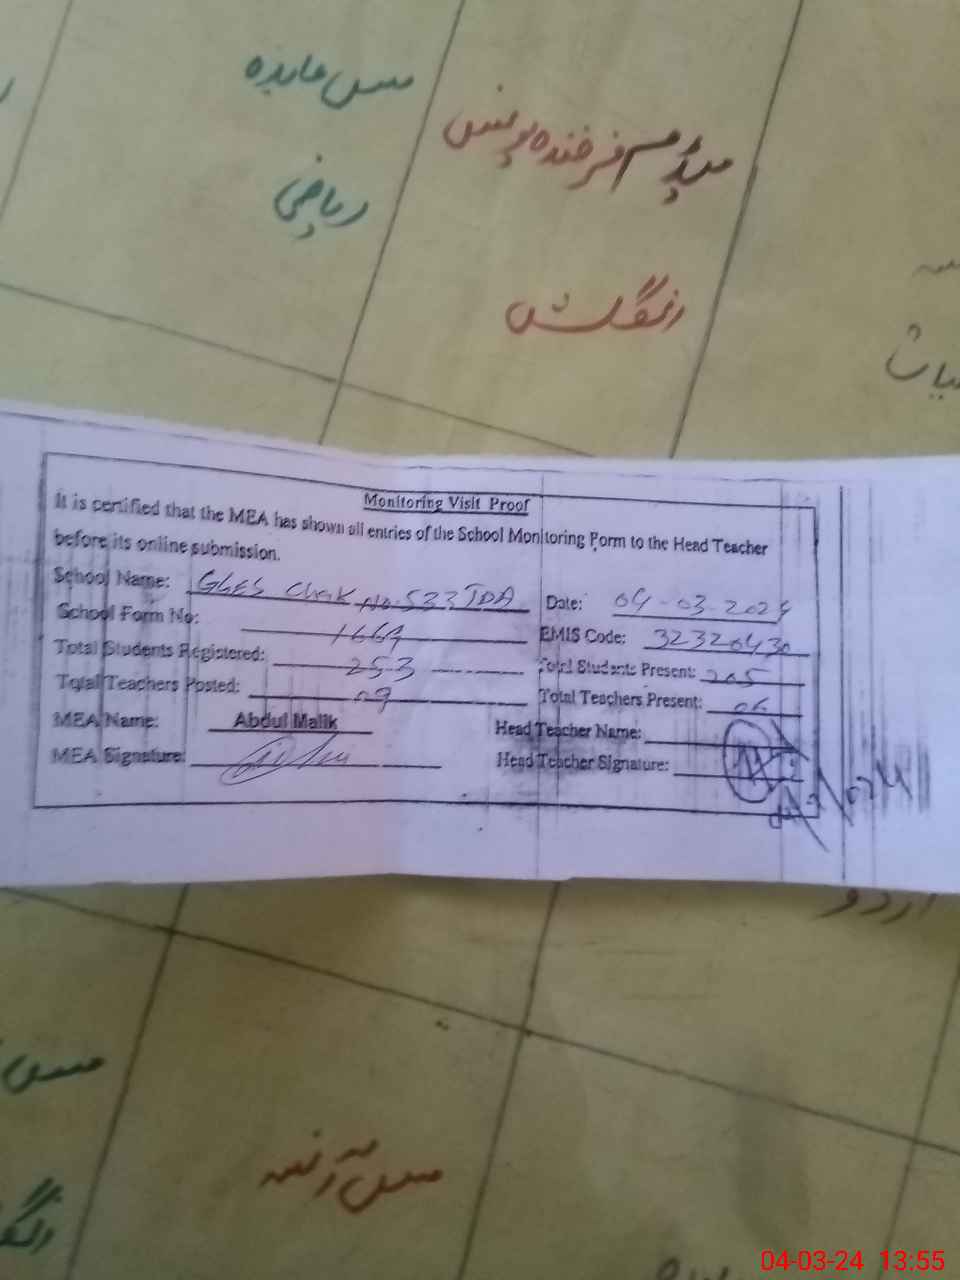 مس عابدہ
ریاضی
میڈم فرخندہ یونس
انگلش
Monitoring Visit Proof
It is certified that the MEA has shown all entries of the School Monitoring Form to the Head Teacher
before its online submission.
School Name: GGES Chak No. 533 TDA Date: 04-03-2024
School Form No: 1664 EMIS Code: 32320430
Total Students Registered: 253 Total Students Present: 205
Total Teachers Posted: 09 Total Teachers Present: 06
MEA Name: Abdul Malik Head Teacher Name:
MEA Signature: Head Teacher Signature:
اردو
مس
مس آنسہ
04-03-24 13:55